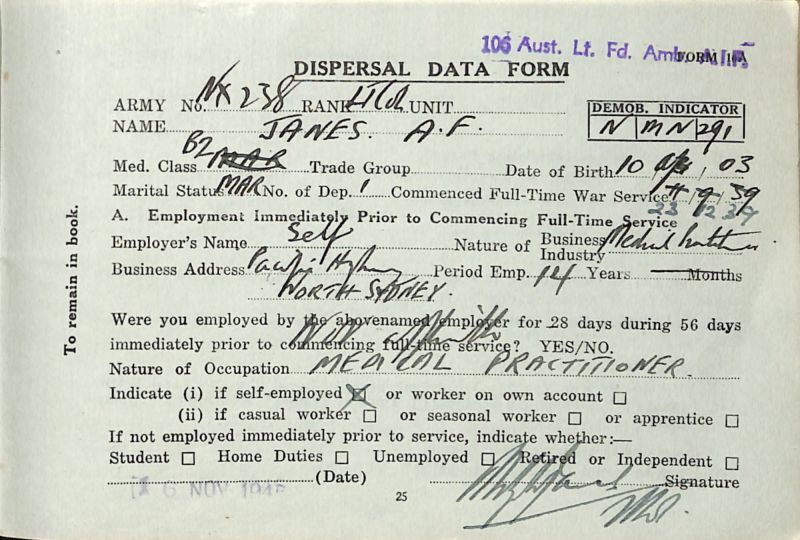 106 Aust. Lt. Fd. Amb. A.I.F.
FORM 10A
DISPERSAL DATA FORM
ARMY No. NX 238 RANK Lt Col UNIT
NAME JANES. A.F.
DEMOB. INDICATOR
N M N 291
Med. Class B2 MAR Trade Group Date of Birth 10 Apr, 03
Marital Status MAR No. of Dep. 1 Commenced Full-Time War Service 9/39
23 12 39
A. Employment Immediately Prior to Commencing Full-Time Service
Employer's Name Self Nature of Business Industry Medical Practitioner
Business Address Pacific Highway Period Emp. 14 Years — Months
NORTH SYDNEY.
Were you employed by the abovenamed employer for 28 days during 56 days
immediately prior to commencing full-time service? YES/NO.
Nature of Occupation MEDICAL PRACTITIONER.
Indicate (i) if self-employed ☒ or worker on own account ☐
(ii) if casual worker ☐ or seasonal worker ☐ or apprentice ☐
If not employed immediately prior to service, indicate whether:—
Student ☐ Home Duties ☐ Unemployed ☐ Retired or Independent ☐
6 NOV 1945 (Date) Signature
25
To remain in book.